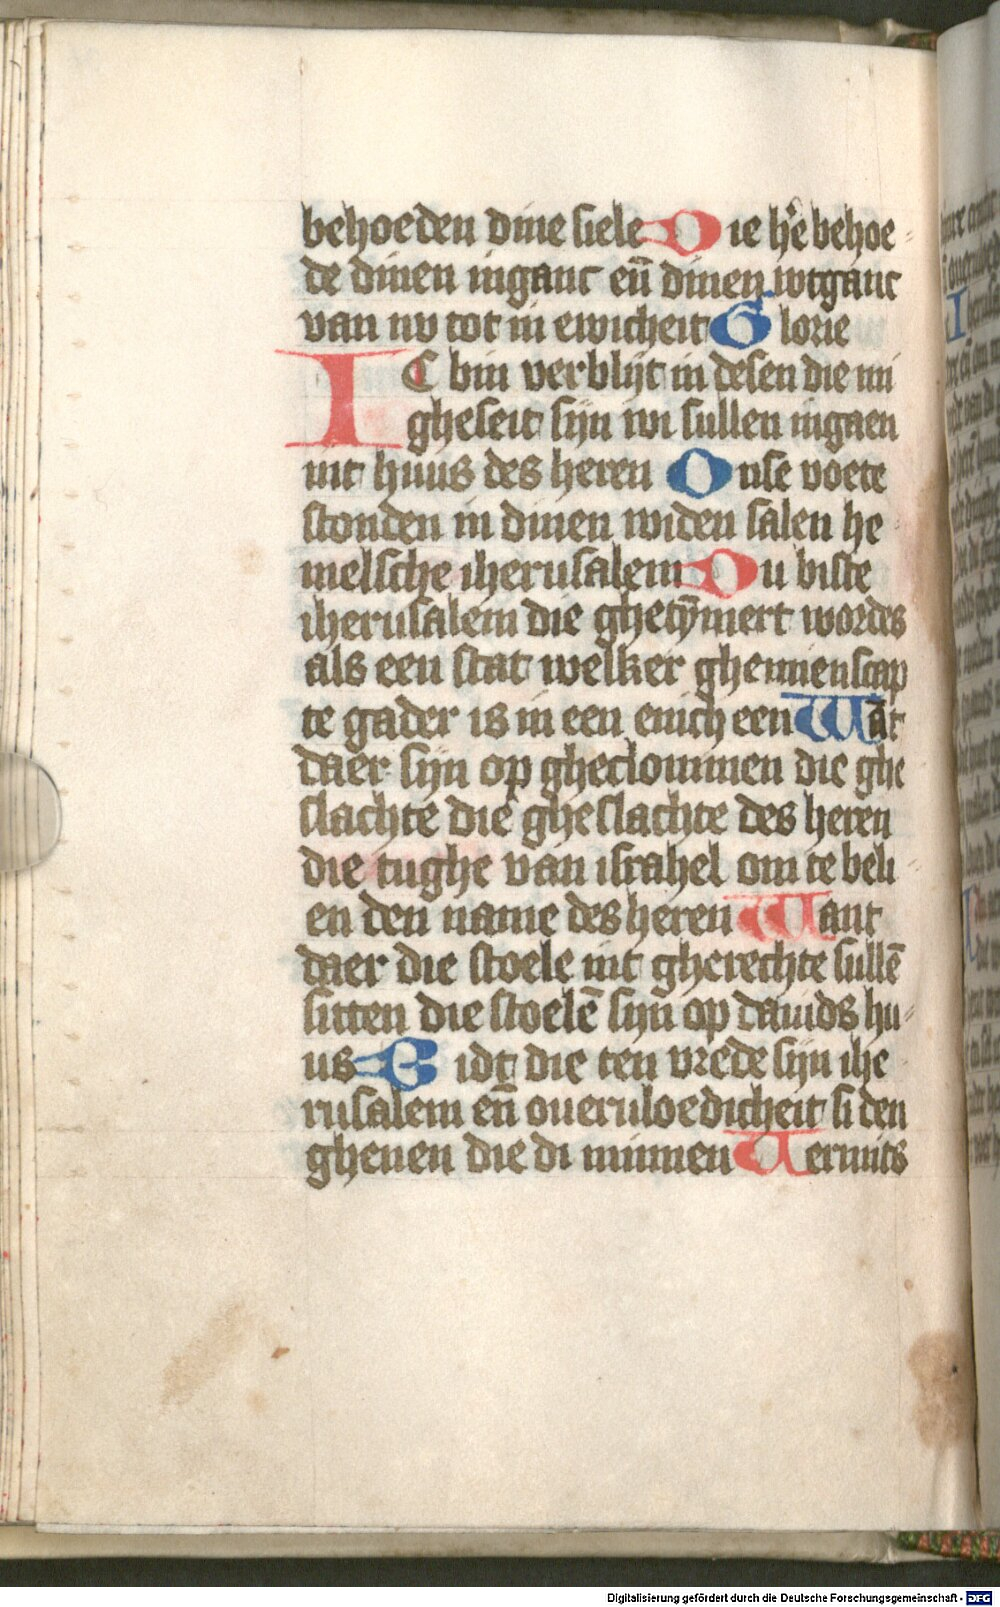 behoeden dine siele Die h'e behoe
de dinen inganc en̄ dinen wtganc
van nv tot in ewicheit Glorie
IC bin verblijt in desen die mi
gheseit sijn wi sullen ingaen
int huus des heren Onse voete
stonden in dinen widen salen he
melsche iherusalem Du biste
iherusalem die ghetȳmert wordes
als een stat welker ghemienscap
te gader is in een enich een Wāt
daer sijn op gheclommen die ghe
slachte die gheslachte des heren
die tughe van israhel om te beli
en den name des heren Want
daer die stoele int gherechte sullē
sitten die stoelē sijn op dauids hu
us Bidt die ten vrede sijn ihe
rusalem en̄ oueruloedicheit si den
ghenen die di minnen Uermits
Digitalisierung gefördert durch die Deutsche Forschungsgemeinschaft - DFG